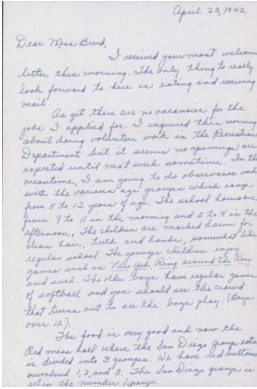 April 23, 1942
Dear Miss Breed,
I received your most welcome
letter this morning. The only thing to really
look forward to here is eating and receiving
mail.
As yet there are no vacancies for the
jobs I applied for. I inquired this morning
about doing volunteer work in the Recreation
Department but it seems no openings are
expected until next week sometime. In the
meantime, I am going to do observance work
with the various age groups which range
from 5 to 12 years of age. The school hours are
from 9 to 11 in the morning and 2 to 4 in the
afternoon. The children are marked down for
clean hair, teeth and hands, somewhat like
regular school. The younger children enjoy
games such as New York, Ring around the Rosy
and such. The older boys have regular games
of softball and you should see the crowd
that turns out to see the boys play. (Boys
over 12).
The food is very good and now the
Red mess hall where the San Diego group eats
is divided into 3 groups. We have red buttons
numbered 1, 2, and 3. The San Diego group is
in the number 1 group.